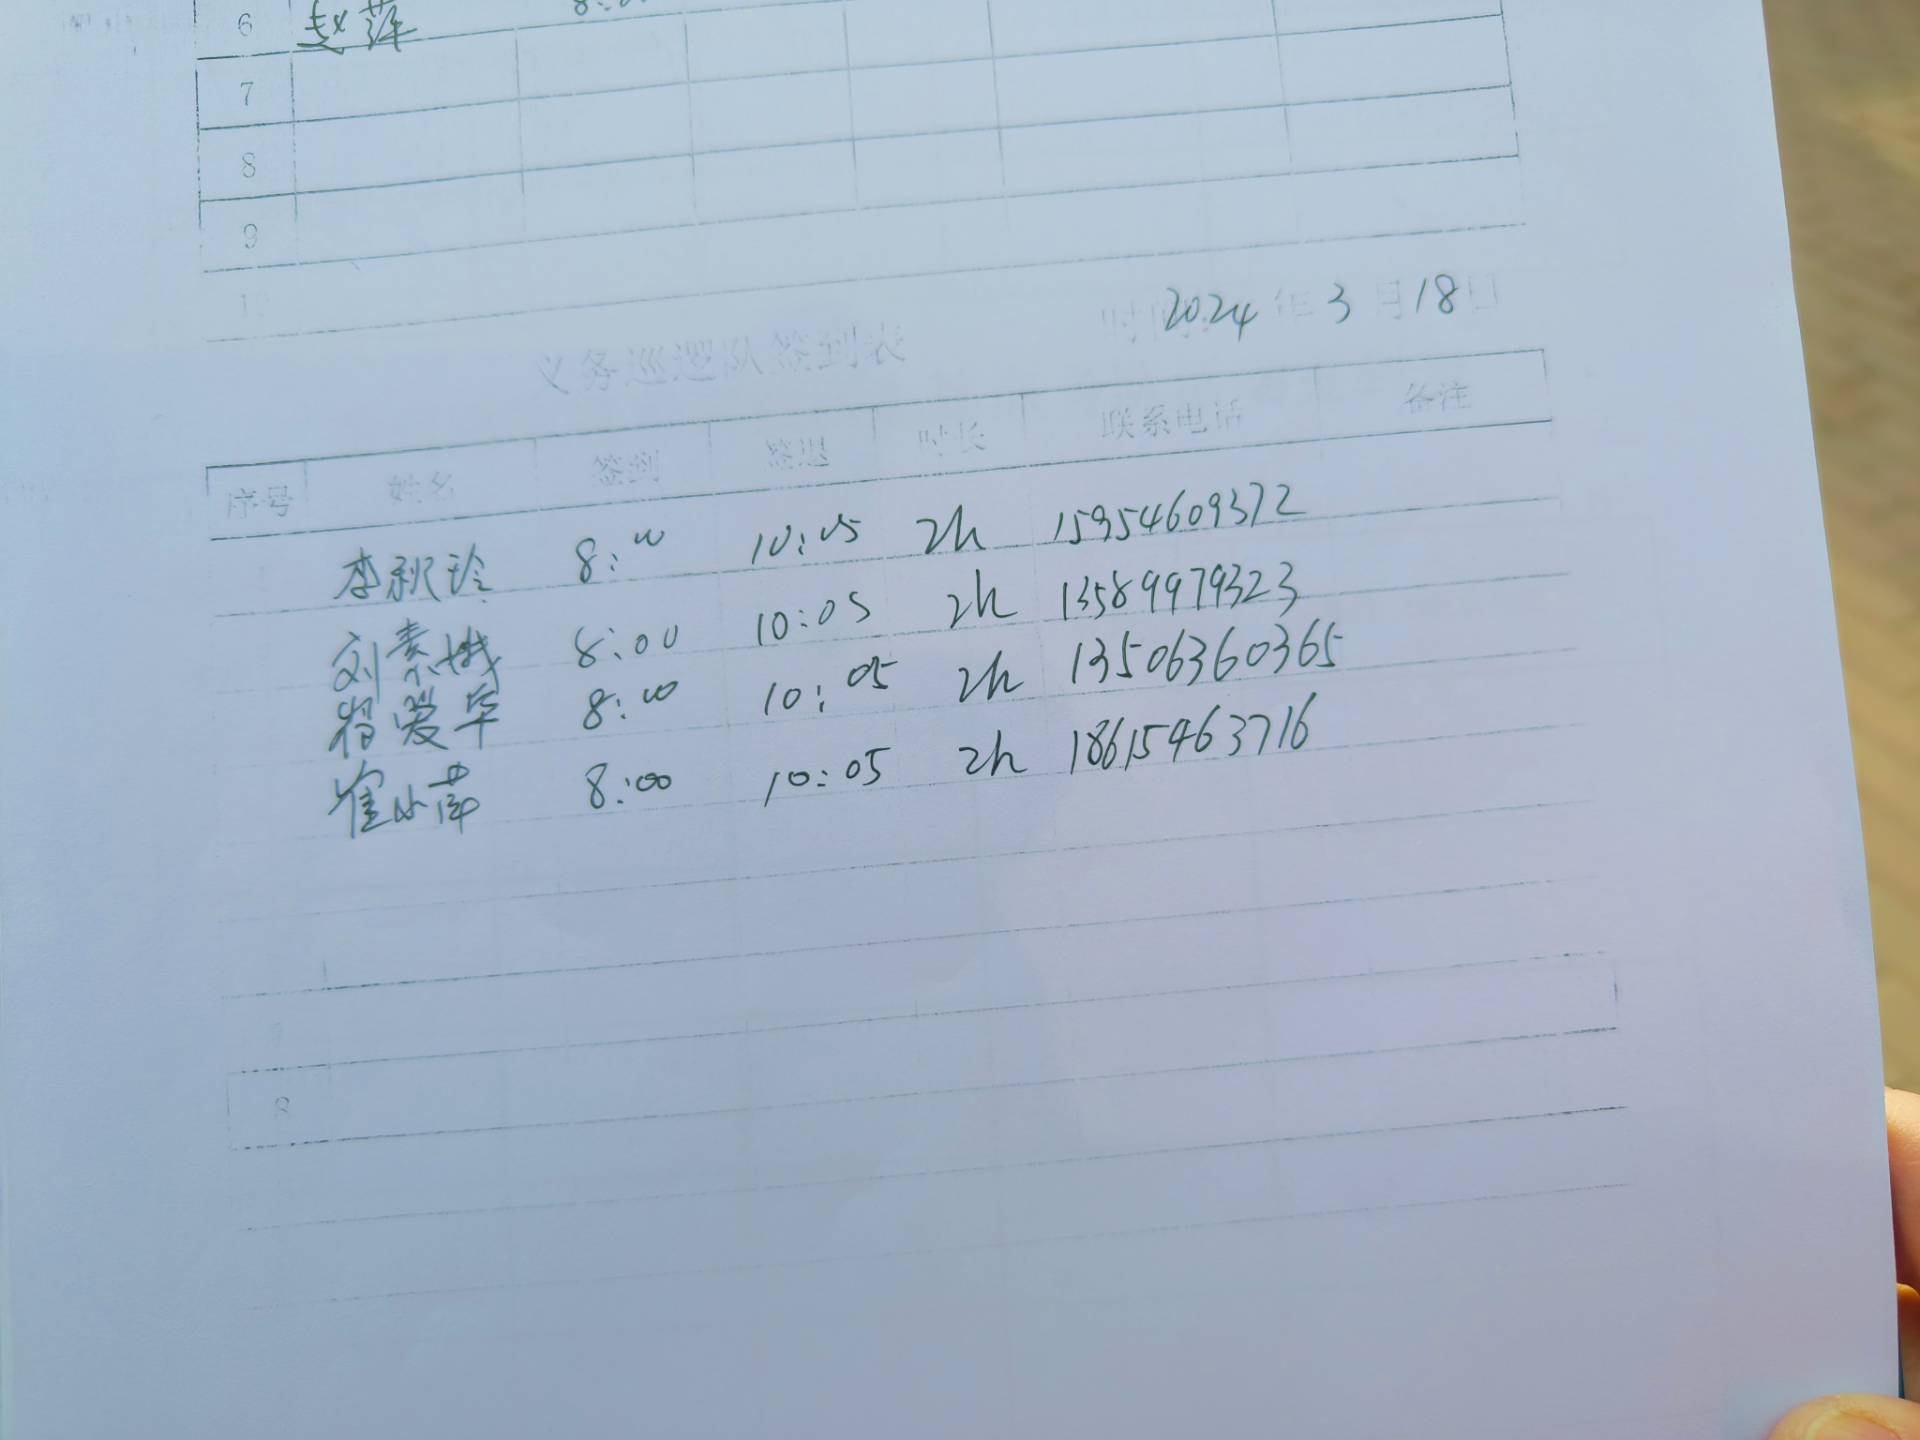 6 赵萍 8:00
7
8
9
10
义务巡逻队签到表 时间:2024年3月18日
序号 姓名 签到 签退 时长 联系电话 备注
李秋玲 8:00 10:05 2h 15954609372
刘素娥 8:00 10:05 2h 13589979323
杨爱华 8:00 10:05 2h 13506360365
崔小萍 8:00 10:05 2h 18615463716
8